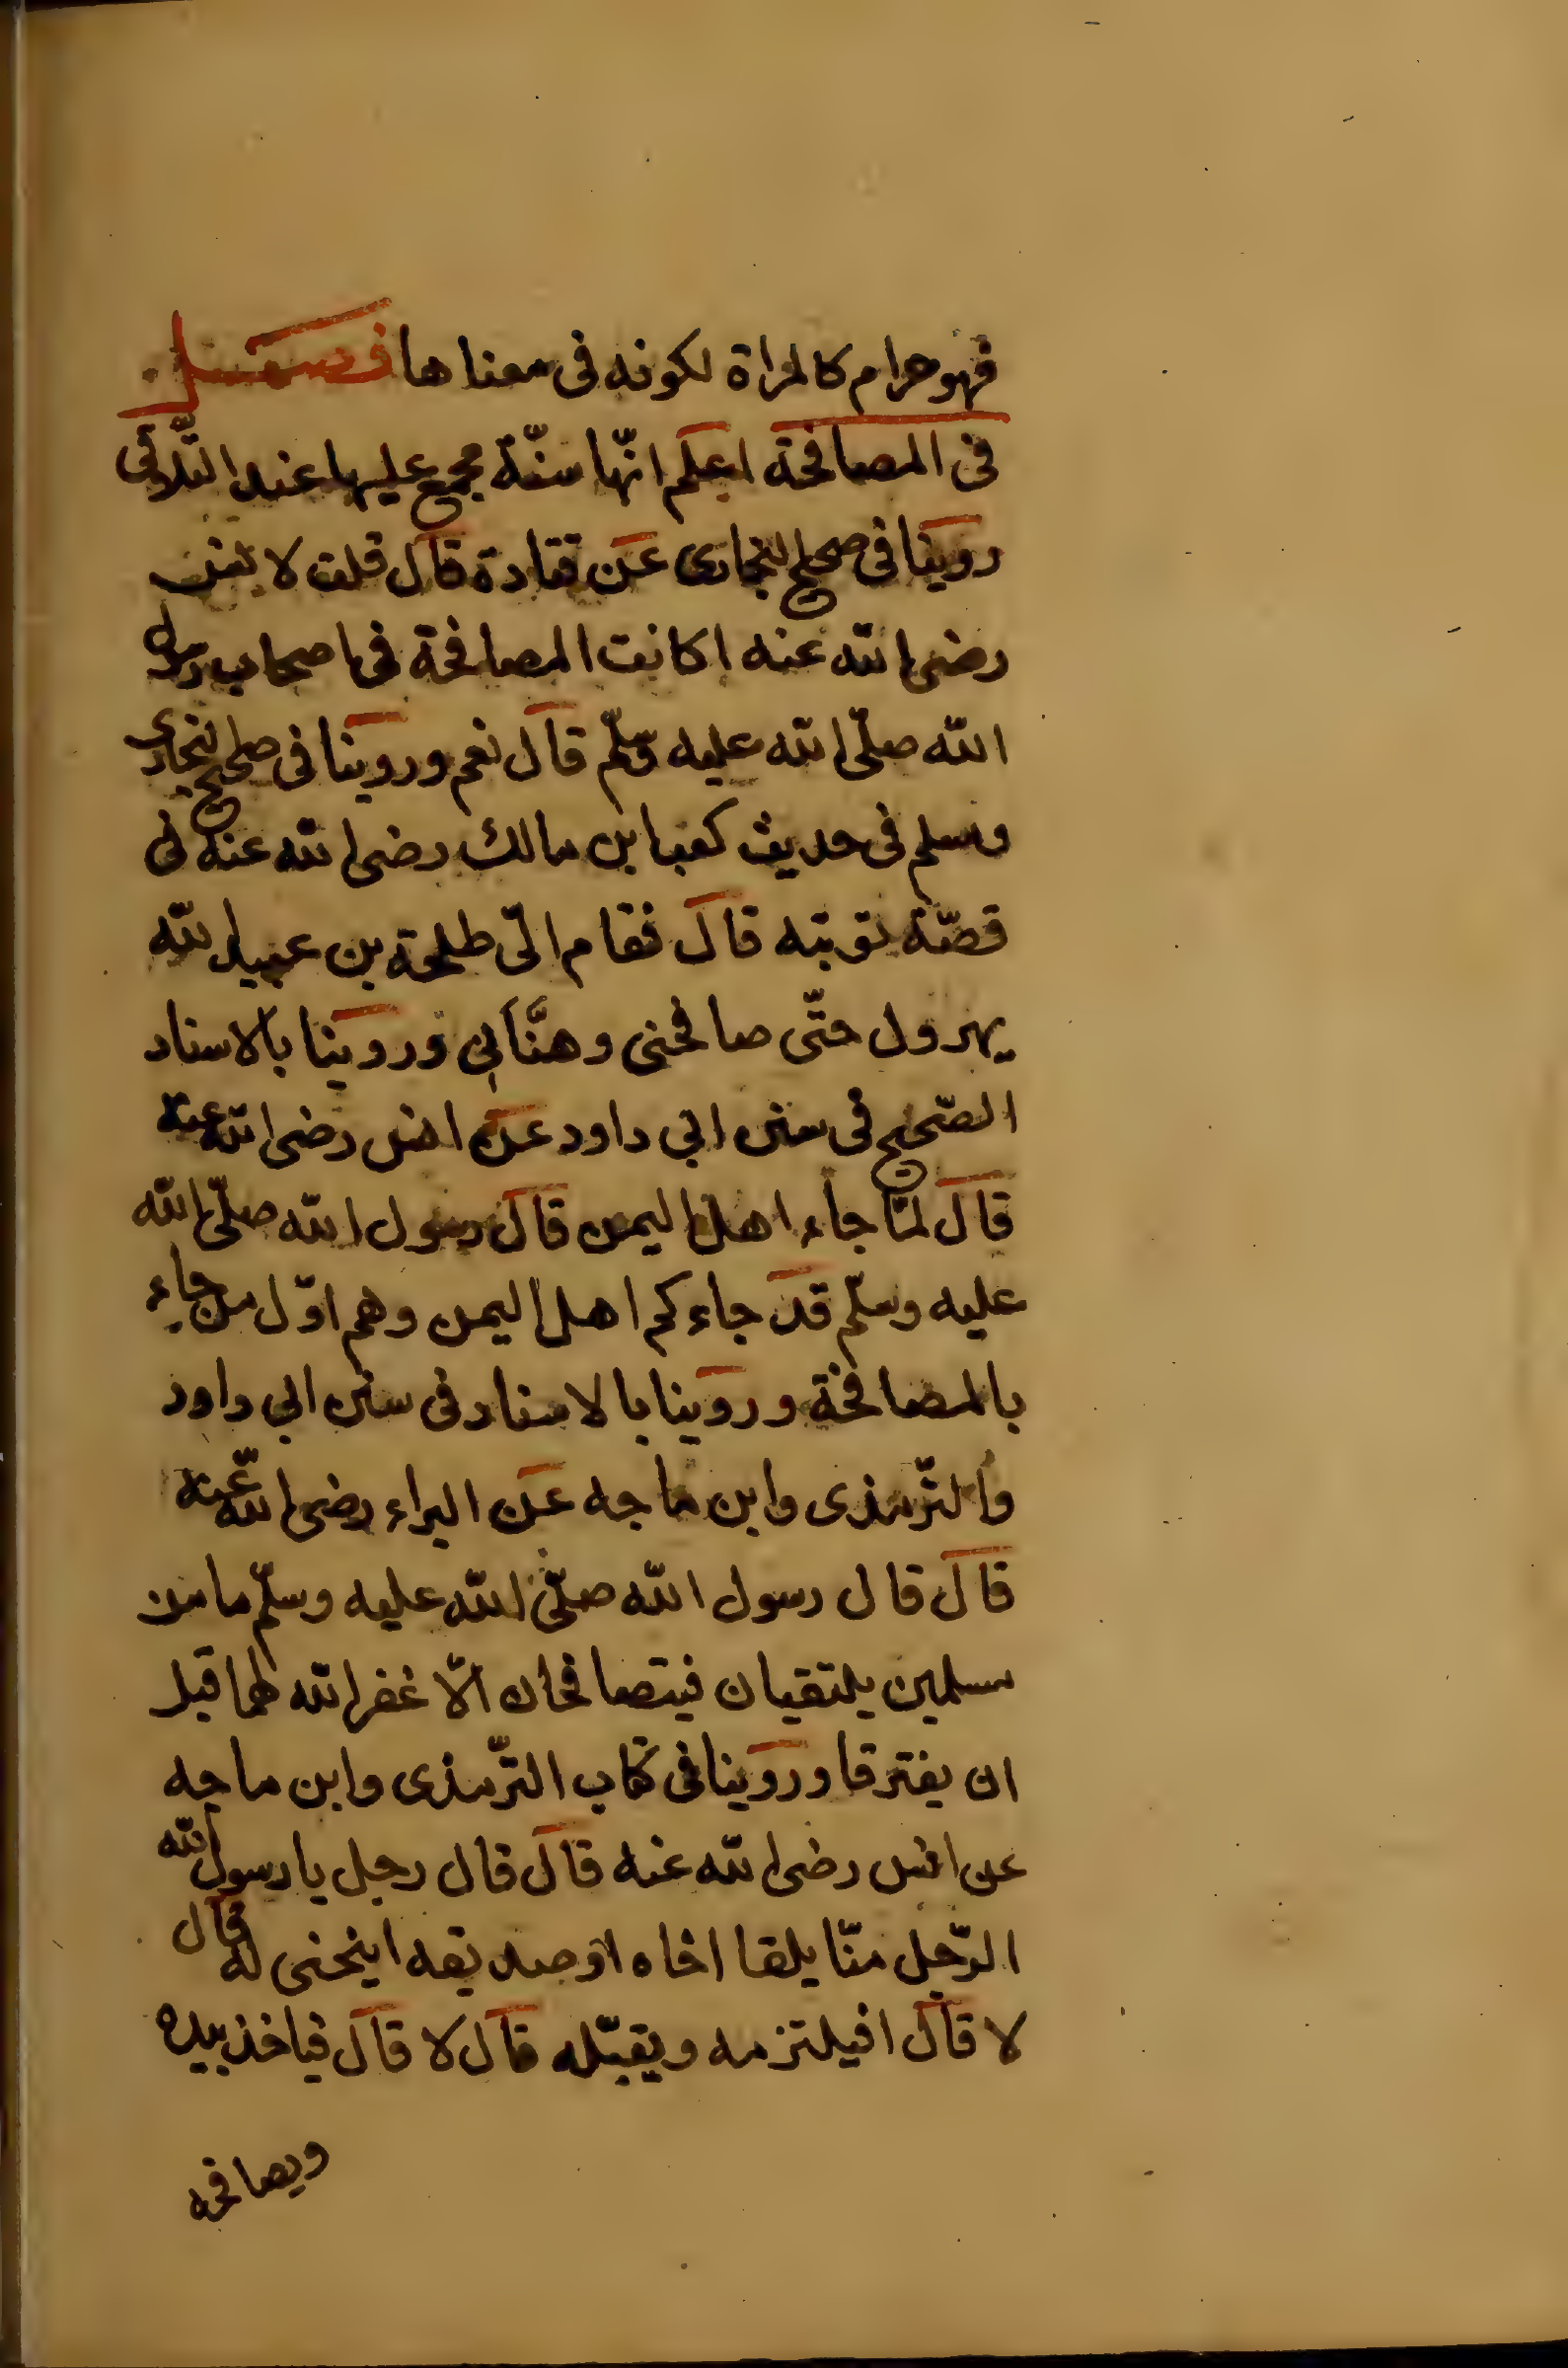 فهو حرام كالمراة لكونه فى معناها فصل
فى المصافحة اعلم انّها سنّة مجمع عليها عند التّلاقى
روينا فى صحيح البخارى عن قتادة قال قلت لانس
رضى الله عنه اكانت المصافحة فى اصحاب رسول
الله صلّى الله عليه وسلّم قال نعم وروينا فى صحيح البخارى
ومسلم فى حديث كعب ابن مالك رضى الله عنه فى
قصّة توبته قال فقام الىّ طلحة بن عبيد الله
يهرول حتّى صافحنى وهنّأنى وروينا بالاسناد
الصّحيح فى سنن ابى داود عن انس رضى الله عنه
قال لمّا جاء اهل اليمن قال رسول الله صلّى الله
عليه وسلّم قد جاءكم اهل اليمن وهم اوّل من جاء
بالمصافحة وروينا بالاسناد فى سنن ابى داود
والتّرمذى وابن ماجه عن البراء رضى الله عنه
قال قال رسول الله صلّى الله عليه وسلّم ما من
مسلمين يلتقيان فيتصافحان الّا غفر الله لهما قبل
ان يفترقا وروينا فى كتاب التّرمذى وابن ماجه
عن انس رضى الله عنه قال قال رجل يا رسول الله
الرّجل منّا يلقا اخاه او صديقه اينحنى له قال
لا قال افيلتزمه ويقبّله قال لا قال فياخذ بيده
ويصافحه